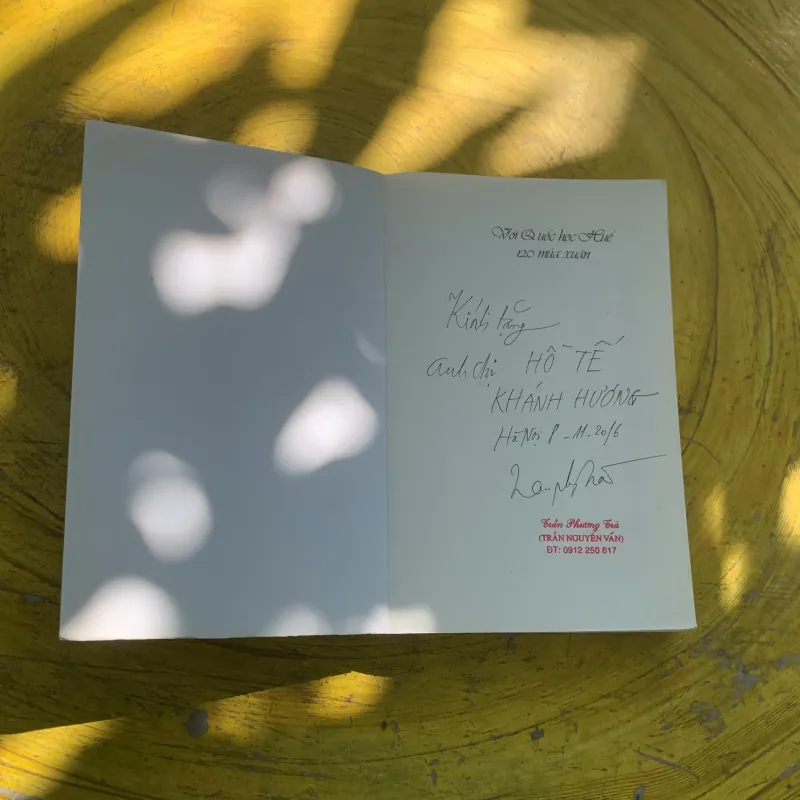 Với Quốc học Huế
120 mùa xuân
Kính tặng
anh chị HỒ TẾ
KHÁNH HƯỚNG
Hà Nội 8-11-2016
Trần Phương Trà
(TRẦN NGUYÊN VẤN)
ĐT: 0912 250 617